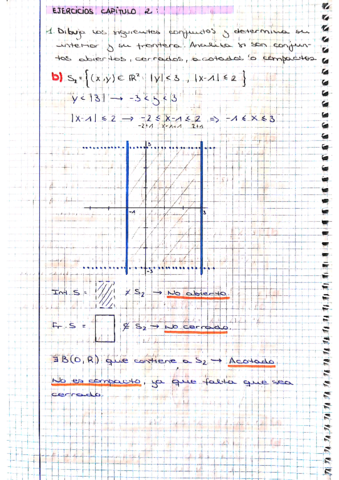 EJERCICIOS CAPÍTULO 2:
1 Dibuja los siguientes conjuntos y determina su
interior y su frontera. Analiza si son conjun-
tos abiertos, cerrados, acotados o compactos
b) S₂ = { (x,y) ∈ ℝ² : |y| < 3 , |x-1| ≤ 2 }
y < |3| → -3 < y < 3
|x-1| ≤ 2 → -2 ≤ x-1 ≤ 2 ⇒ -1 ≤ x ≤ 3
-2+1 x-1+1 2+1
3
-1 3
-3
Int. S = ≠ S₂ → No abierto
Fr. S = ∉ S₂ → No cerrado.
∃ B(0,R) que contiene a S₂ → Acotado.
No es compacto, ya que falta que sea
cerrado.